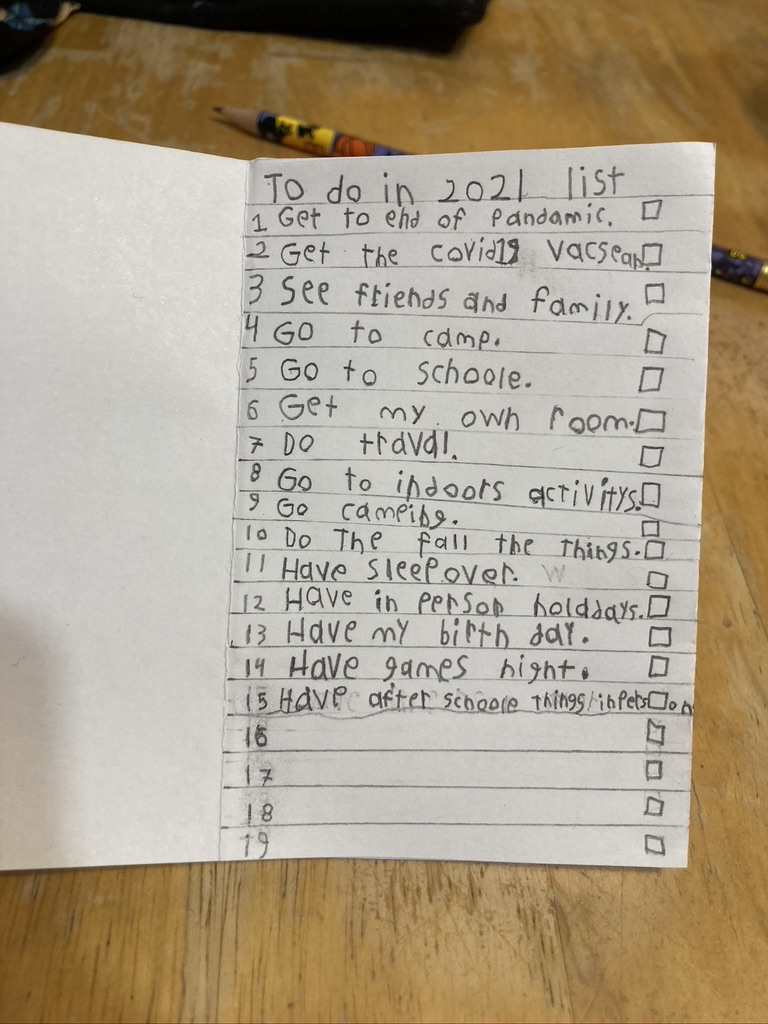 To do in 2021 list
1 Get to end of pandamic.
2 Get the covid19 vacsean.
3 See friends and family.
4 Go to camp.
5 Go to schoole.
6 Get my own room.
7 Do traval.
8 Go to indoors activitys.
9 Go campeing.
10 Do The fall the things.
11 Have sleepover. W
12 Have in person holddays.
13 Have my birth day.
14 Have games night.
15 Have after schoole things/inperson
16
17
18
19